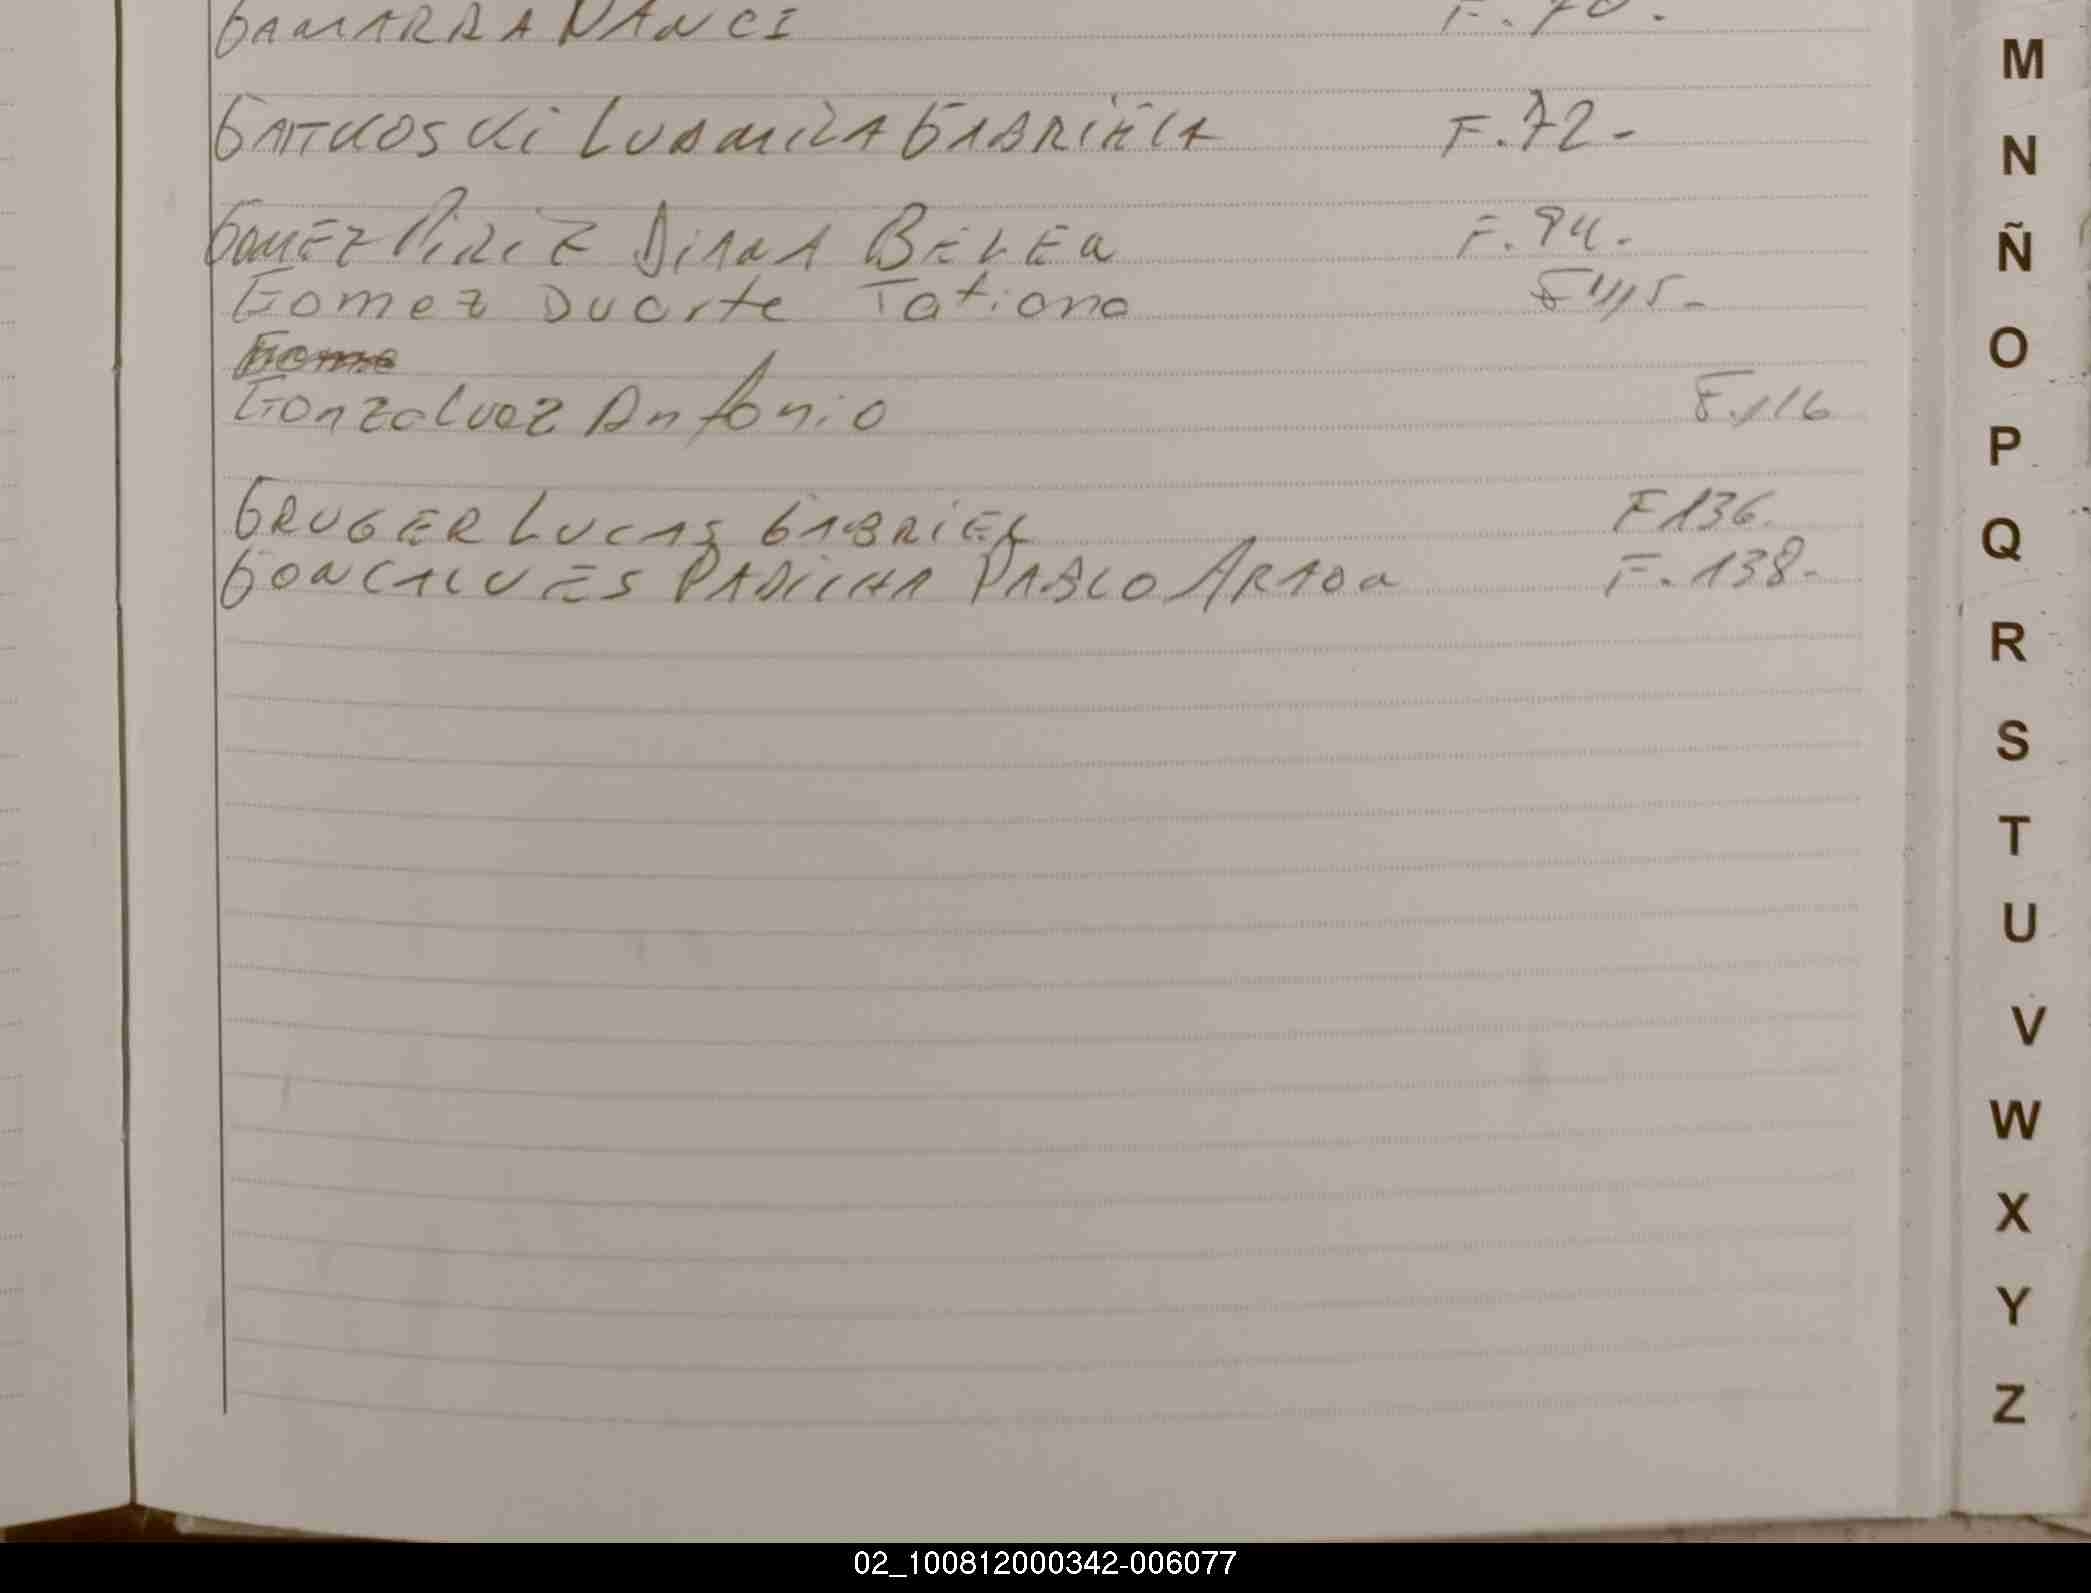 GAMARRA NANCI F. 70.
GAITKOSKI LUDMILA GABRIELA F. 72-
GOMEZ PIRIZ DIANA BELEN F. 94.
Gomez Duarte Tatiana F 115-
Gome
Gonzalvez Antonio F. 116
GRUGER LUCAS GABRIEL F 136.
GONCALVES PADILHA PABLO ARIAN F. 138-
M
N
Ñ
O
P
Q
R
S
T
U
V
W
X
Y
Z
02_100812000342-006077